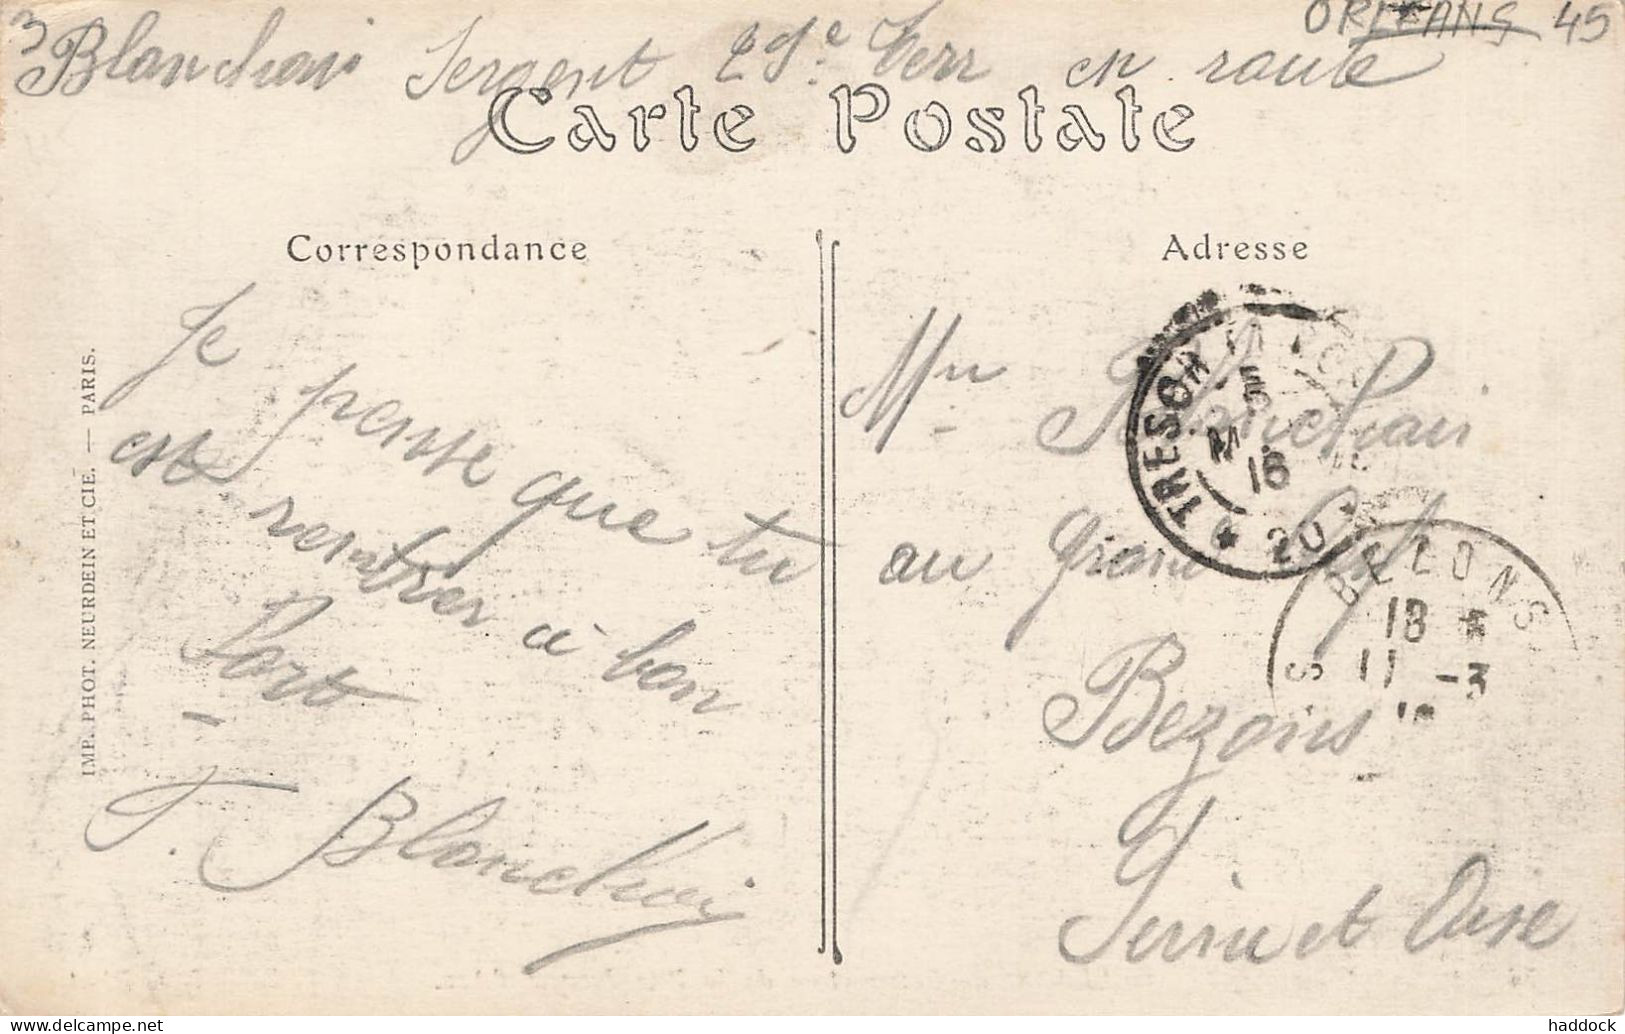 ORLEANS 45
Blanchai Sergent 29e Terr en route
Carte Postale
Correspondance
Adresse
Je pense que tu
est rentrer à bon
Port
F. Blanchai
IMP. PHOT. NEURDEIN ET CIE. — PARIS.
Mme Blanchai
au Grand
Bezons
Seine et Oise
TRESOR
5
16
* 20 *
BEZONS
18 *
11 -3
S
delcampe.net
haddock